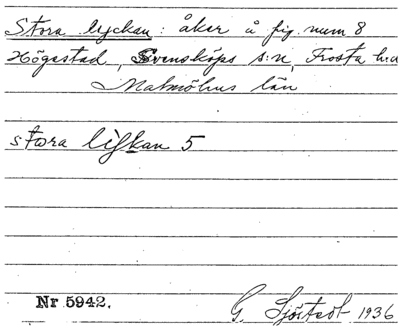 Stora lyckan: åker å fig. num 8
Högestad, Svensköps s:n, Frosta h:d
Malmöhus län
stora lyckan 5
Nr 5942.
G. Sjöstedt 1936